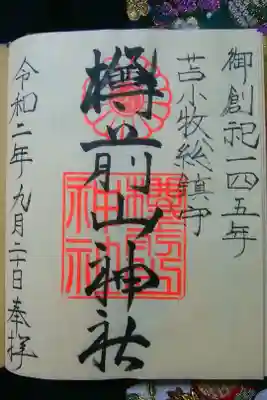 御創祀一四五年
苫小牧総鎮守
樽前山神社
令和二年九月二十日奉拝